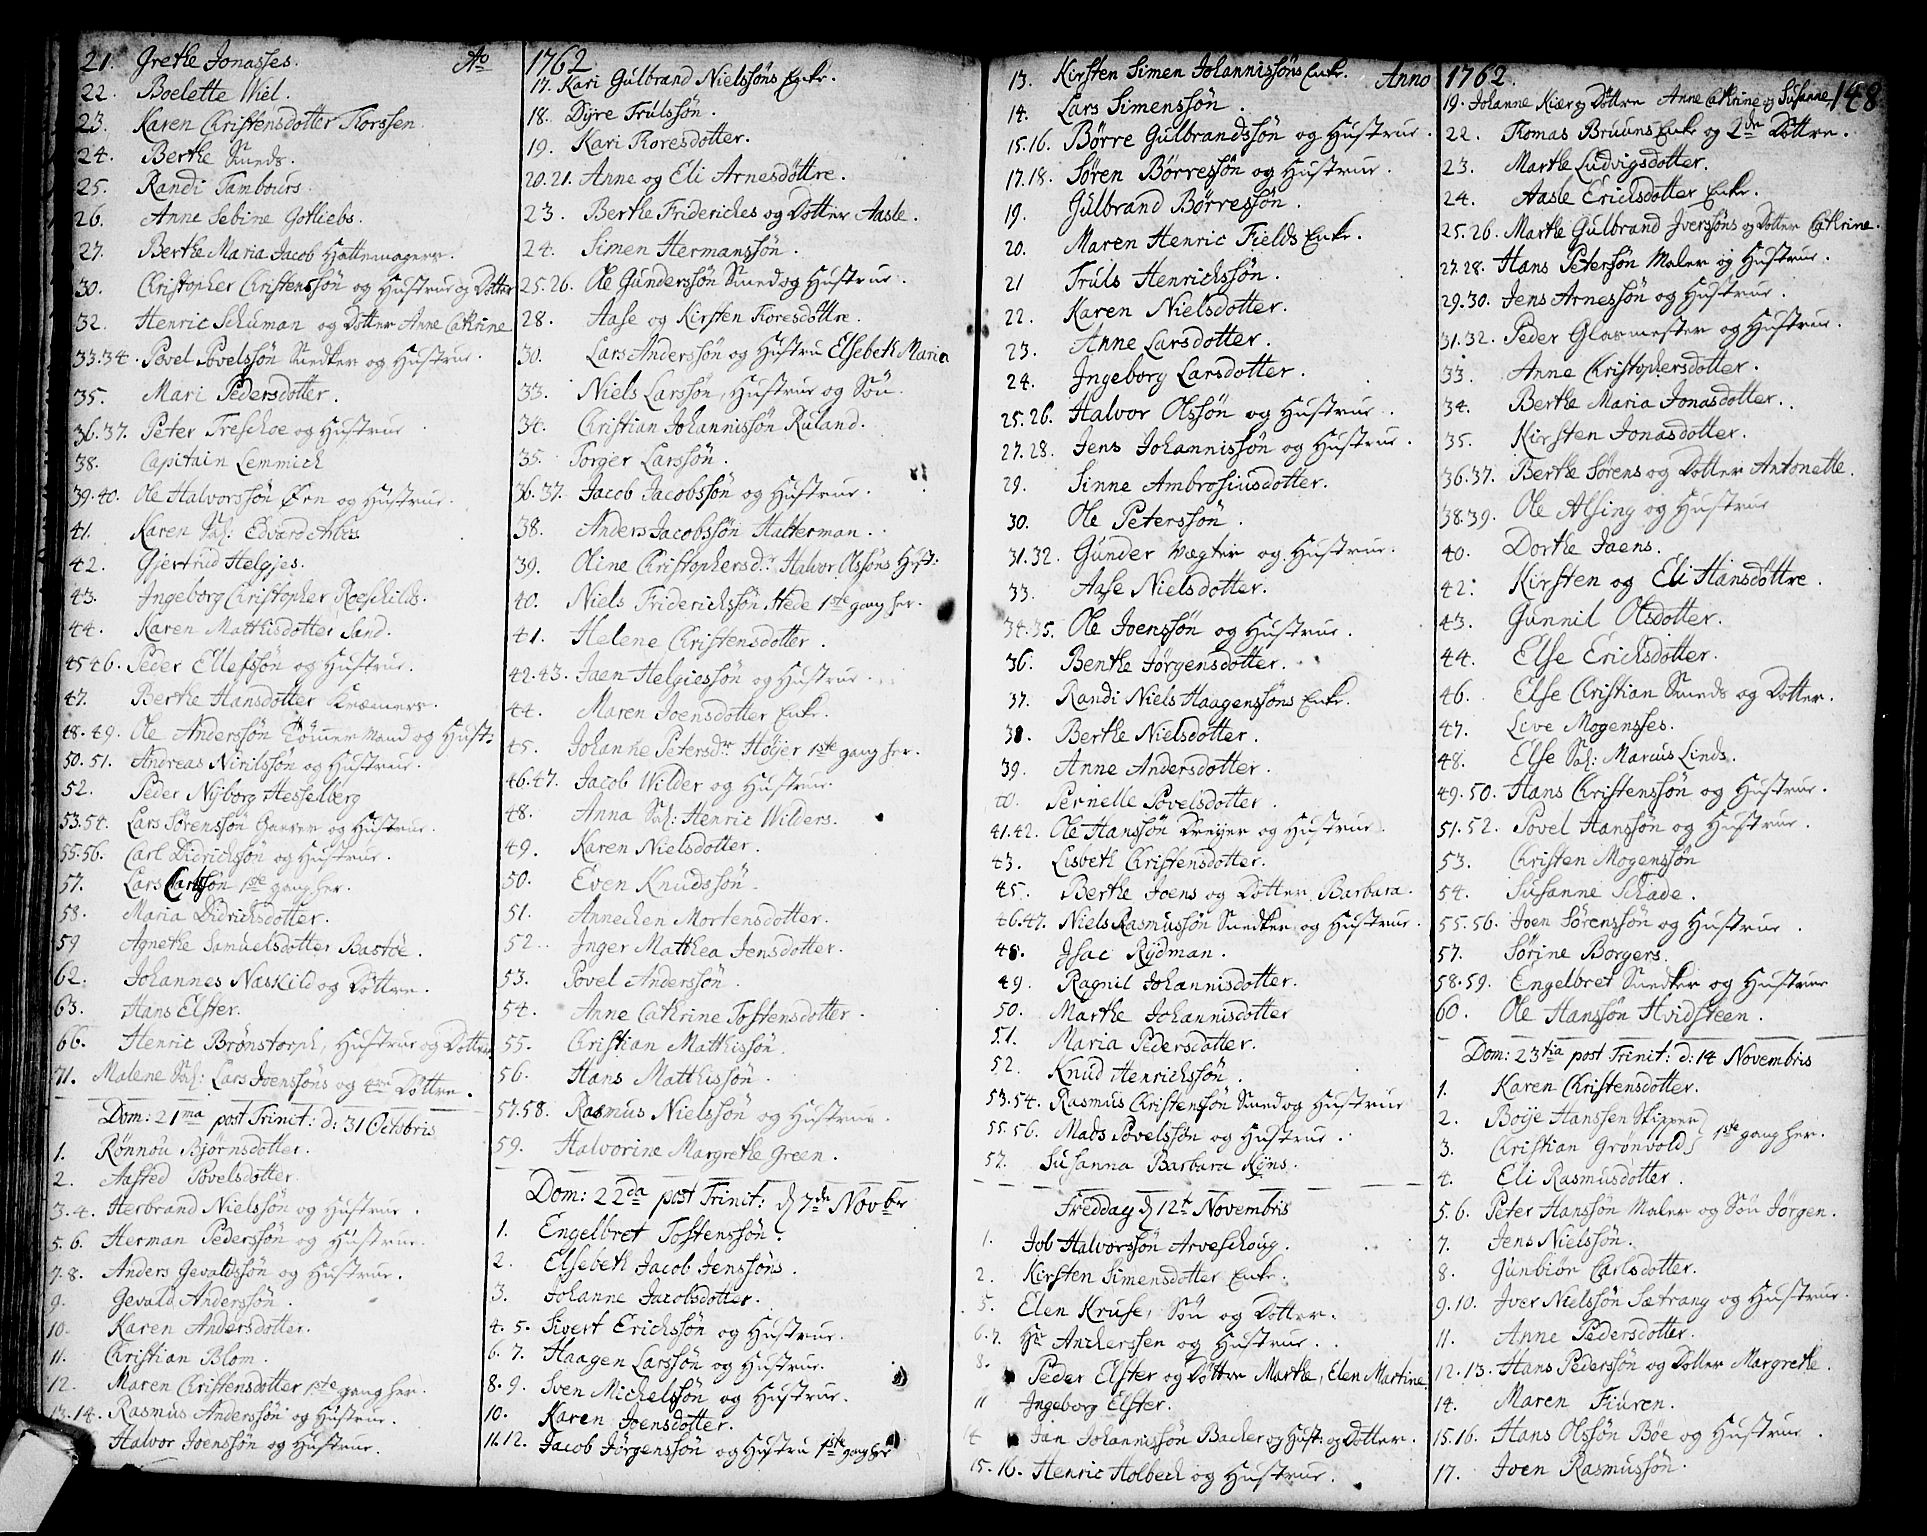 Ao 1762
21. Grethe Jonasses.
22. Boelette Wiel.
23. Karen Christensdotter Thorssen
24. Berthe Smeds.
25. Randi Tambours.
26. Anne Sebine Gotliebs.
27. Berthe Maria Jacob Hattemagers.
30. Christopher Christenssøn og Hustrue og Dotter
32. Henric Schuman og Dotter Anne Cathrine
33.34. Povel Povelssøn Snedker og Hustrue.
35. Mari Pedersdotter.
36.37. Peter Treschoe og Hustrue
38. Capitain Lemmich
39.40. Ole Halvorssøn Øen og Hustrue.
41. Karen Sal: Edvard Arbos
42. Gjertrud Helgjes.
43. Ingeborg Christopher Roeschilds.
44. Karen Matthisdotter Sand.
45.46. Peder Ellefssøn og Hustrue.
47. Berthe Hansdotter Kræmers.
48.49. Ole Anderssøn Tømmer Mand og Hust:
50.51. Andreas Nirilssøn og Hustrue.
52. Peder Nyborg Hesselberg
53.54. Lars Sørenssøn Garver og Hustrue.
55.56. Carl Didrichssøn og Hustrue.
57. Lars Carlssøn 1ste gang her.
58. Maria Didrichsdotter.
59 Agnethe Samuelsdotter Bastøe.
62. Johannes Næskild og Døttre.
63. Hans Elster.
66. Henric Brønstorph, Hustrue og Dotter
71. Malene Sal: Lars Joenssøns og 4re Døttre.
Dom: 21ma post Trinit: d: 31 Octobris
1. Rønnou Bjørnsdotter.
2. Aasted Povelsdotter.
3.4. Herbrand Nielssøn og Hustrue.
5.6. Herman Pederssøn og Hustrue.
7.8. Anders Gevaldssøn og Hustrue.
9. Gevald Anderssøn.
10. Karen Andersdotter.
11. Christian Blom.
12. Maren Christensdotter 1ste gang her.
13.14. Rasmus Anderssøn og Hustrue.
Halvor Joenssøn og Hustrue.
17. Kari Gulbrand Nielssøns Enke.
18. Dyre Trulssøn.
19. Kari Thoresdotter.
20.21. Anne og Eli Arnesdøttre.
23. Berthe Friderichs og Dotter Aasle.
24. Simen Hermanssøn.
25.26. Ole Gunderssøn Smed og Hustrue.
28. Aase og Kirsten Thoresdøttre.
30. Lars Anderssøn og Hustru Elsebeth Maria
33. Niels Larssøn, Hustrue og Søn.
34. Christian Johannissøn Ruland.
35. Torger Larssøn.
36.37. Jacob Jacobssøn og Hustrue.
38. Anders Jacobssøn Halterman.
39. Oline Christophersdr. Halvor Olssøns Hust:
40. Niels Friderichssøn Hede 1ste gang her.
41. Helene Christensdotter.
42.43. Jaen Helgiessøn og Hustrue.
44. Maren Joensdotter Enke.
45. Johanne Petersdr Høyer 1ste gang her.
46.47. Jacob Wilder og Hustrue.
48. Anna Sal: Henric Wilders.
49. Karen Nielsdotter.
50. Even Knudssøn.
51. Annechen Mortensdotter.
52. Inger Matthea Jensdotter.
53. Povel Anderssøn.
54. Anne Cathrine Tostensdotter.
55. Christian Matthissøn.
56. Hans Matthissøn.
57.58. Rasmus Nielssøn og Hustrue.
59. Halvorine Margrethe Green.
Dom: 22da post Trinit: d 7de Novbr
1. Engelbret Tostenssøn.
2. Elsebeth Jacob Jenssøns.
3. Johanne Jacobsdotter.
4.5. Sivert Erichssøn og Hustrue.
6.7. Haagen Larssøn og Hustrue.
8.9. Sven Michelssøn og Hustrue.
10. Karen Joensdotter.
11.12. Jacob Jørgenssøn og Hustru 1ste gang her
Anno 1762. 148
13. Kirsten Simen Johannissøns Enke.
14. Lars Simenssøn.
15.16. Børre Gulbrandssøn og Hustrue.
17.18. Søren Børressøn og Hustrue.
19. Gulbrand Børressøn.
20. Maren Henric Fields Enke.
21 Truls Henrichssøn.
22. Karen Nielsdotter.
23. Anne Larsdotter.
24. Ingeborg Larsdotter.
25.26. Halvor Olssøn og Hustrue.
27.28. Jens Johannissøn og Hustrue.
29. Sinne Ambrosiusdotter.
30. Ole Peterssøn.
31.32. Gunder Vægter og Hustrue.
33. Aase Nielsdotter.
34.35. Ole Joenssøn og Hustrue.
36. Benthe Jørgensdotter.
37. Randi Niels Haagenssøns Enke.
38. Berthe Nielsdotter.
39. Anne Andersdotter.
40. Pernelle Povelsdotter.
41.42. Ole Hanssøn Dreyer og Hustrue.
43. Lisbeth Christensdotter.
45. Berthe Joens og Dotter Barbara.
46.47. Niels Rasmussøn Snedker og Hustrue.
48. Isac Rydman.
49. Ragnil Johannisdotter.
50. Marthe Johannisdotter
51. Maria Pedersdotter.
52. Knud Henrichssøn.
53.54. Rasmus Christenssøn Smed og Hustrue
55.56. Mads Povelssøn og Hustrue.
57. Susanna Barbara Kyns.
Freddag d 12te Novembris
1. Job Halvorssøn Arveschoug.
2. Kirsten Simensdotter Enke.
5. Elen Kruse, Søn og Dotter.
6.7. Hr Ancherssen og Hustrue.
8. Peder Elster og Døttre Marthe, Elen Martine.
11 Ingeborg Elster.
14 Jan Johannissøn Backer og Hust: og Dotter.
15.16. Henric Holbech og Hustrue.
19. Johanne Kiær og Døttre Anne Cathrine og Susanne
22. Thomas Bruuns Enke og 2de Døttre.
23. Marthe Ludvigsdotter.
24. Aasle Erichsdotter Enke.
25.26. Marthe Gulbrand Iverssøns og Dotter Cathrine.
27.28. Hans Peterssøn Maler og Hustrue.
29.30. Jens Arnessøn og Hustrue.
31.32. Peder Glasmester og Hustrue.
33. Anne Christophersdotter.
34. Berthe Maria Jonasdotter.
35. Kirsten Jonasdotter.
36.37. Berthe Sørens og Dotter Antonette.
38.39. Ole Alsing og Hustrue
40. Dorthe Jaens.
42. Kirsten og Eli Hansdøttre.
43. Gunnil Olsdotter.
44. Else Erichsdotter.
46. Else Christian Smeds og Dotter.
47. Live Mogensses.
48. Else Sal: Marcus Linds.
49.50. Hans Christenssøn og Hustrue.
51.52. Povel Hanssøn og Hustrue.
53. Christen Mogenssøn
54. Susanne Schade.
55.56. Joen Sørenssøn og Hustrue.
57. Sørine Borgers.
58.59. Engelbret Snedker og Hustrue
60. Ole Hanssøn Hvidsteen.
Dom: 23tia post Trinit: d: 14 Novembris
1. Karen Christensdotter.
2. Boije Hanssen Skipper
3. Christian Grønvold, 1ste gang her.
4. Eli Rasmusdotter.
5.6. Peter Hanssøn Maler og Søn Jørgen.
7. Jens Nielssøn.
8. Gunbiør Carlsdotter.
9.10. Iver Nielssøn Sætrang og Hustrue.
11. Anne Pedersdotter.
12.13. Hans Pederssøn og Dotter Margrethe.
14. Maren Fiuren.
15.16. Hans Olssøn Bøe og Hustrue.
17. Joen Rasmussøn.